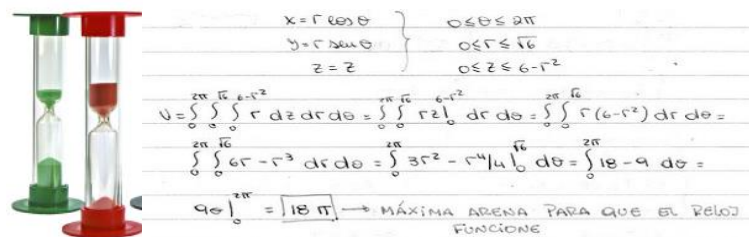 x = r cos θ 0 ≤ θ ≤ 2π
y = r sen θ } 0 ≤ r ≤ √6
z = z 0 ≤ z ≤ 6-r²
V = ∫₀^2π ∫₀^√6 ∫₀^6-r² r dz dr dθ = ∫₀^2π ∫₀^√6 rz|₀^6-r² dr dθ = ∫₀^2π ∫₀^√6 r(6-r²) dr dθ =
∫₀^2π ∫₀^√6 6r - r³ dr dθ = ∫₀^2π 3r² - r⁴/4|₀^√6 dθ = ∫₀^2π 18 - 9 dθ =
9θ|₀^2π = 18 π → MÁXIMA ARENA PARA QUE EL RELOJ
FUNCIONE